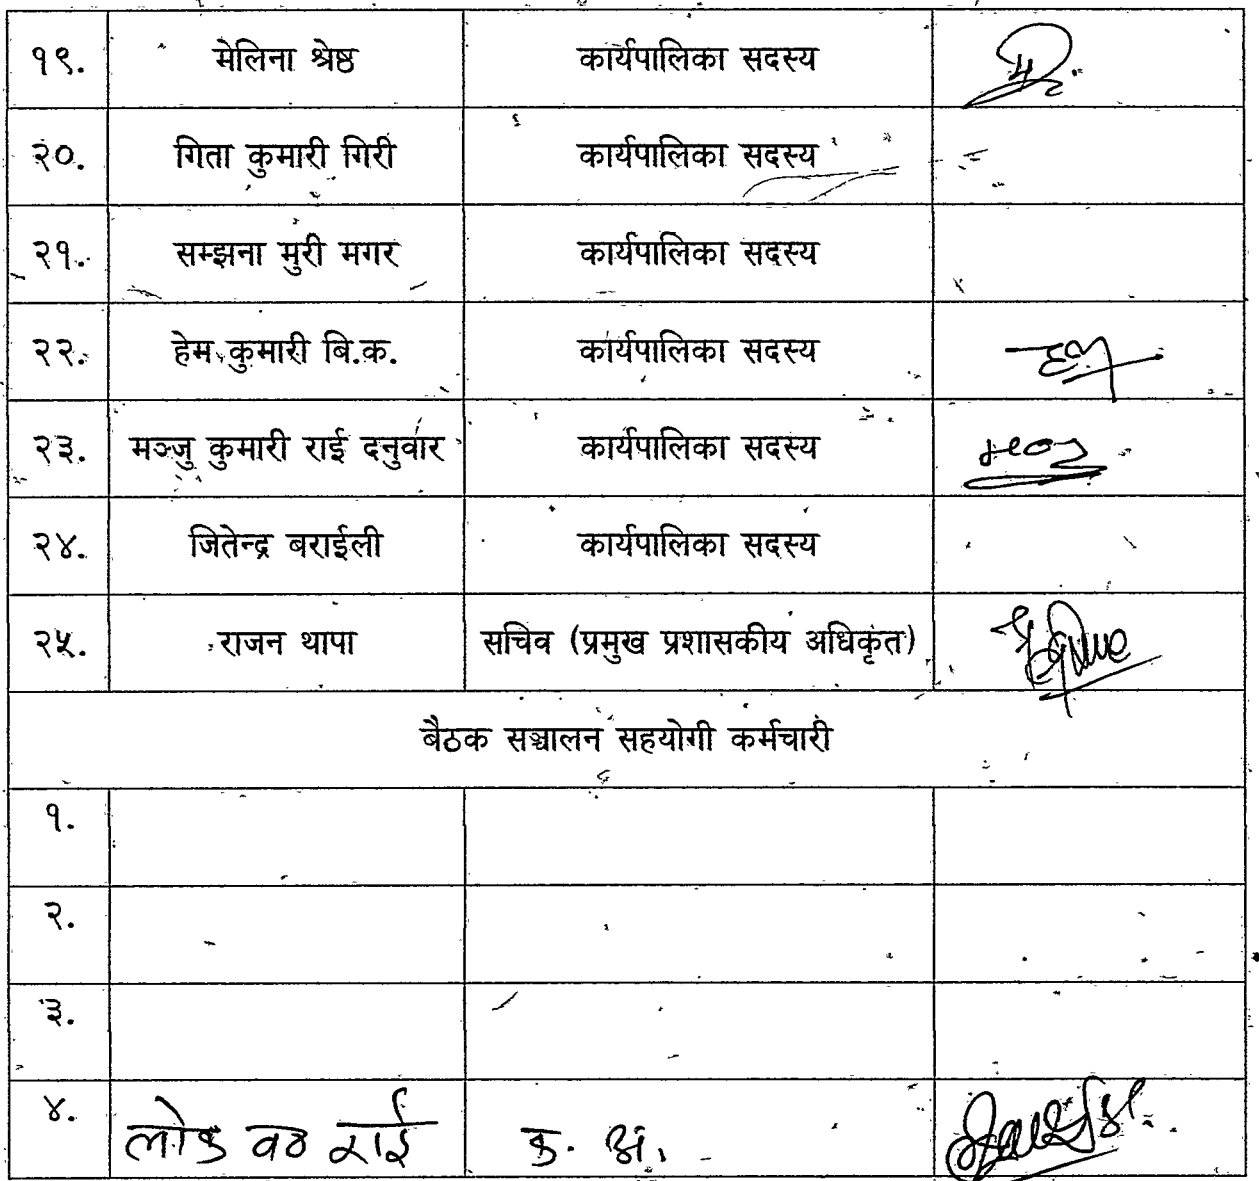 १९. मेलिना श्रेष्ठ कार्यपालिका सदस्य
२०. गिता कुमारी गिरी कार्यपालिका सदस्य
२१. सम्झना मुरी मगर कार्यपालिका सदस्य
२२. हेम कुमारी बि.क. कार्यपालिका सदस्य
२३. मञ्जु कुमारी राई दनुवार कार्यपालिका सदस्य
२४. जितेन्द्र बराईली कार्यपालिका सदस्य
२५. राजन थापा सचिव (प्रमुख प्रशासकीय अधिकृत)
बैठक सञ्चालन सहयोगी कर्मचारी
१.
२.
३.
४. लोक राई क. अ.